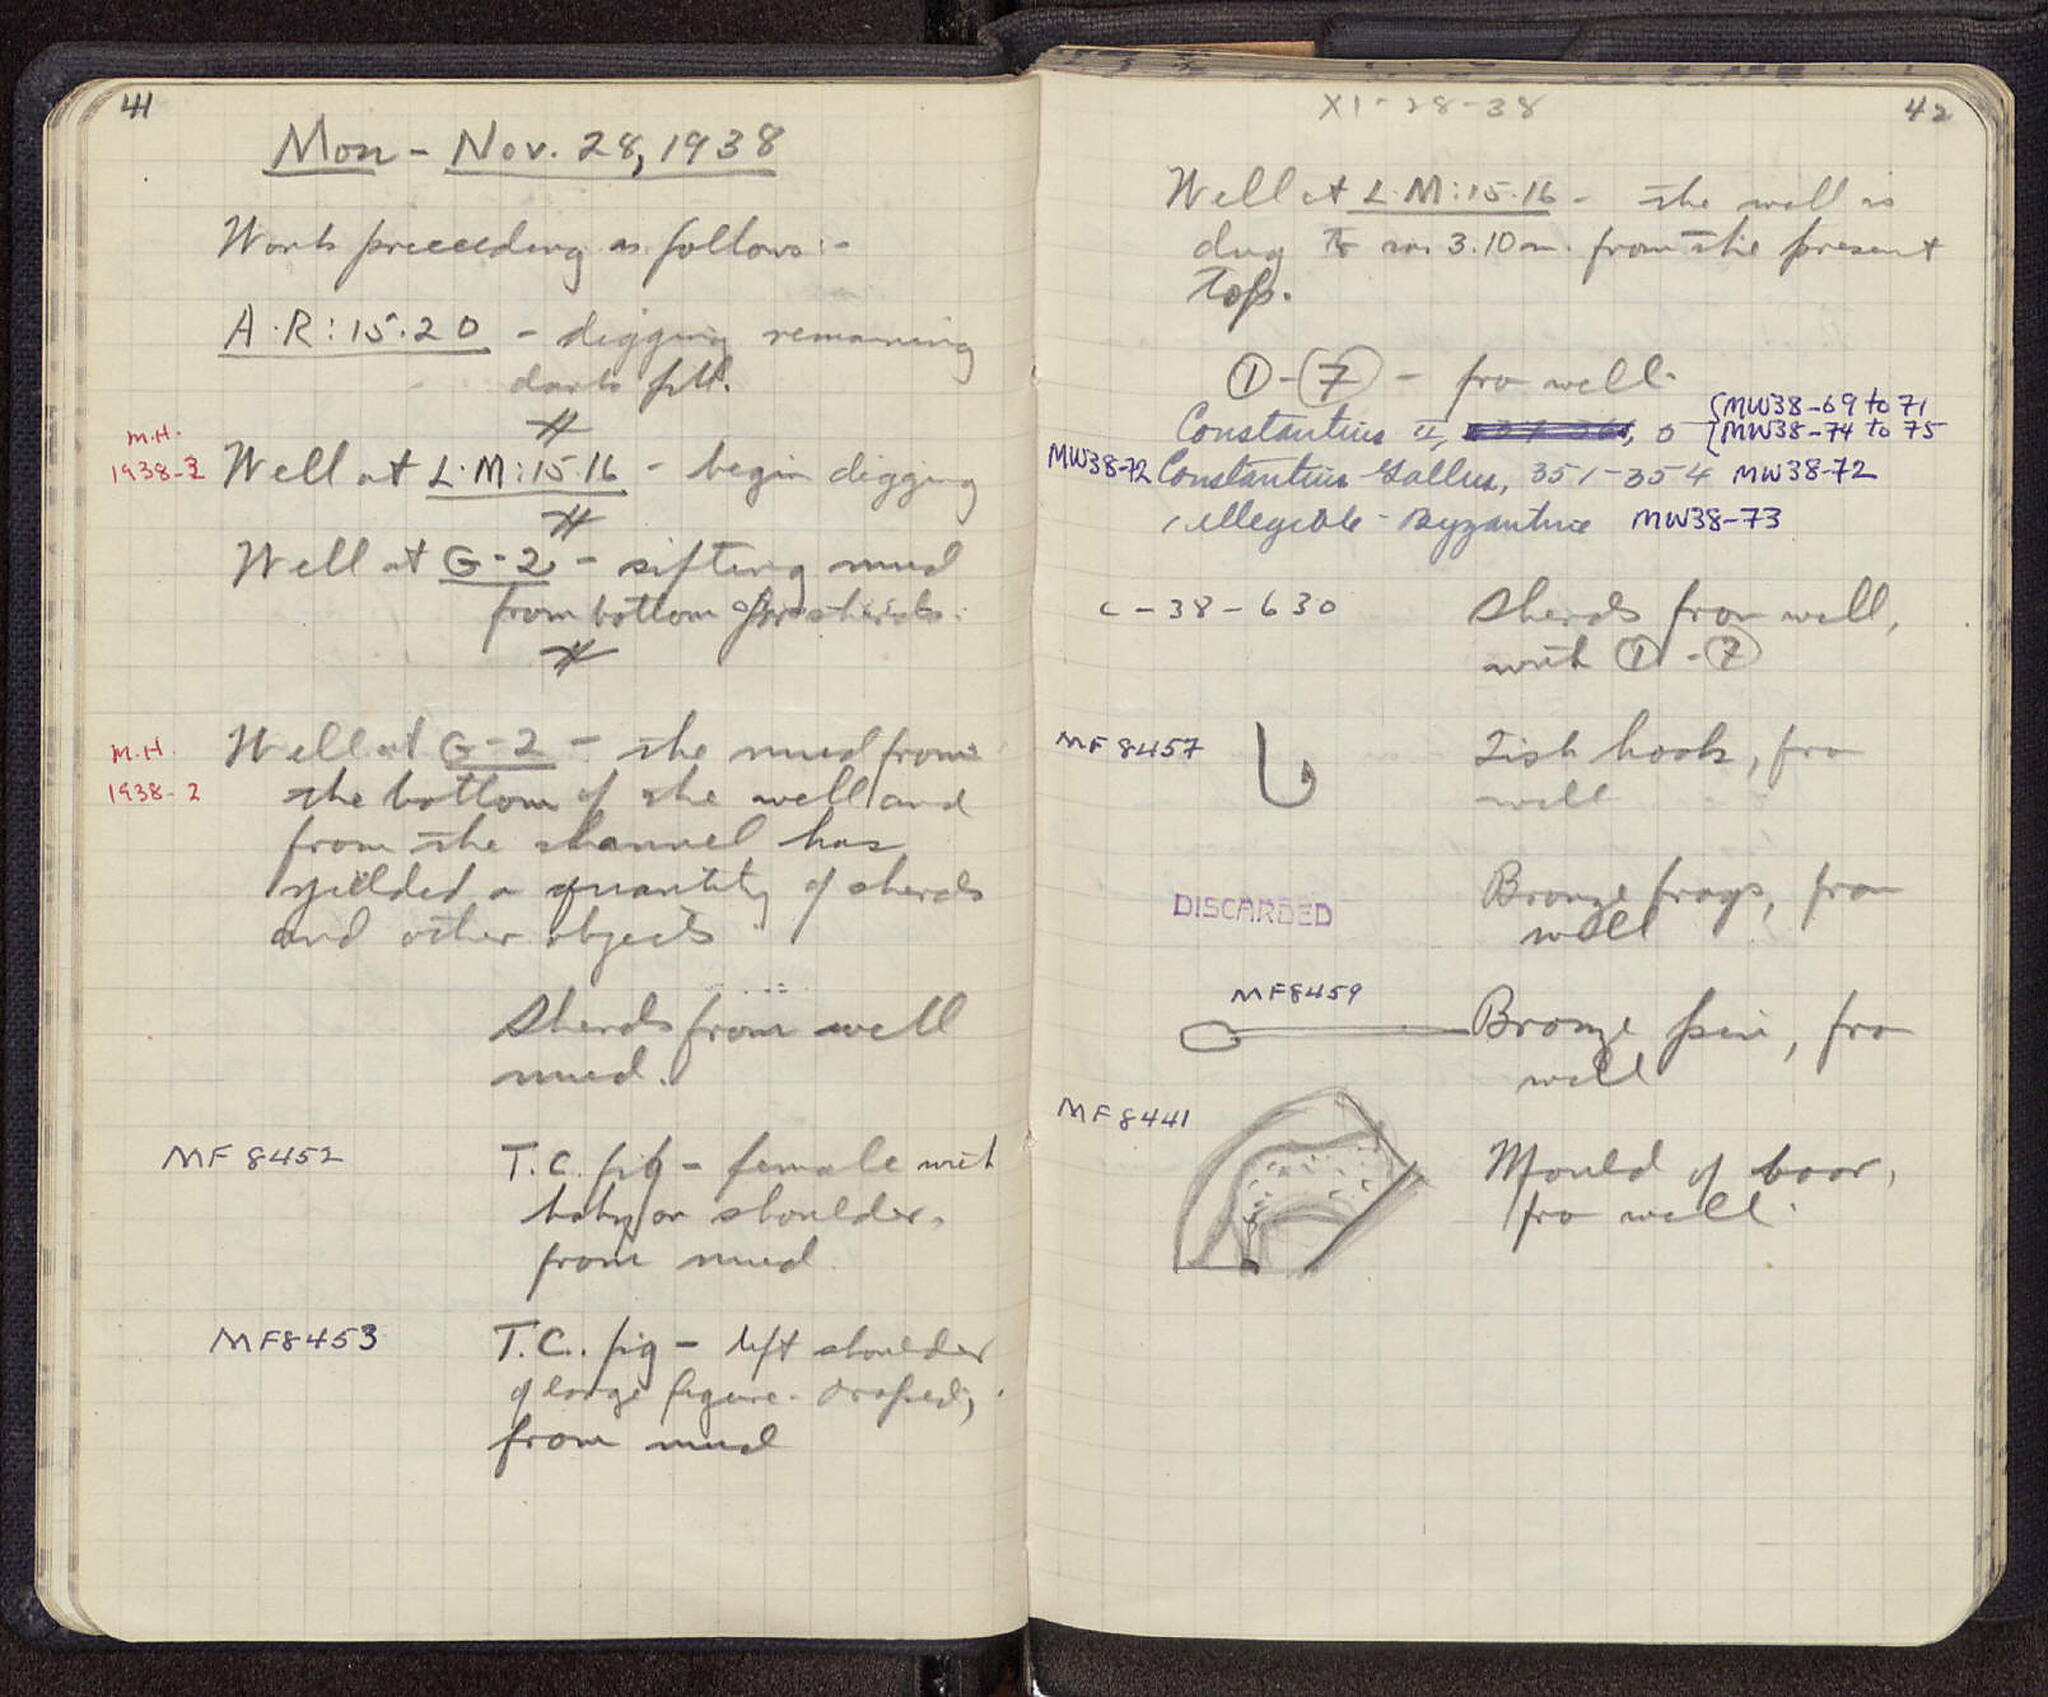 41
Mon - Nov. 28, 1938
Work proceeding as follows:-
A.R:15.20 - digging remaining
dark fill.
M.H.
1938-3 Well at L.M:15.16 - begin digging
Well at G-2 - sifting mud
from bottom for sherds.
M.H.
1938-2
Well at G-2 - the mud from
the bottom of the well and
from the channel has
yielded a quantity of sherds
and other objects
Sherds from well
mud.
MF 8452 T.C. fig - female with
baby on shoulder,
from mud
MF8453 T.C. fig - left shoulder
of large figure - draped,
from mud
XI-28-38
42
Well at L.M:15.16 - the well is
dug to m. 3.10 m. from the present
top.
① - ⑦ - fro well.
Constantius II, O {MW38-69 to 71
{MW38-74 to 75
MW38-72 Constantius Gallus, 351-354 MW38-72
1 illegible - Byzantine MW38-73
C-38-630 Sherds from well,
with ① - ⑦
MF 8457 Fish hook, fro
well
DISCARDED Bronze frags, fro
well
MF8459
Bronze pin, fro
well
MF 8441
Mould of boar,
fro well.